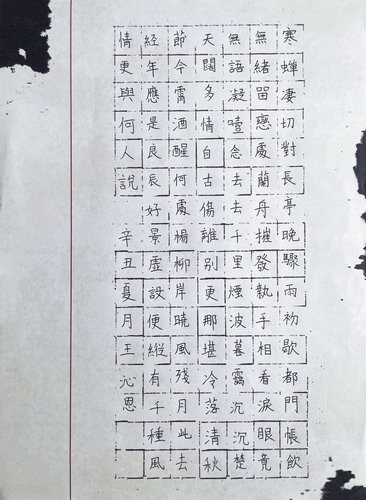 寒蟬淒切對長亭晚驟雨初歇都門帳飲
無緒留戀處蘭舟摧發執手相看淚眼竟
無語凝噎念去去千里煙波暮靄沉沉楚
天闊多情自古傷離別更那堪冷落清秋
節今宵酒醒何處楊柳岸曉風殘月此去
經年應是良辰好景虛設便縱有千種風
情更與何人說
辛丑夏月王沁恩